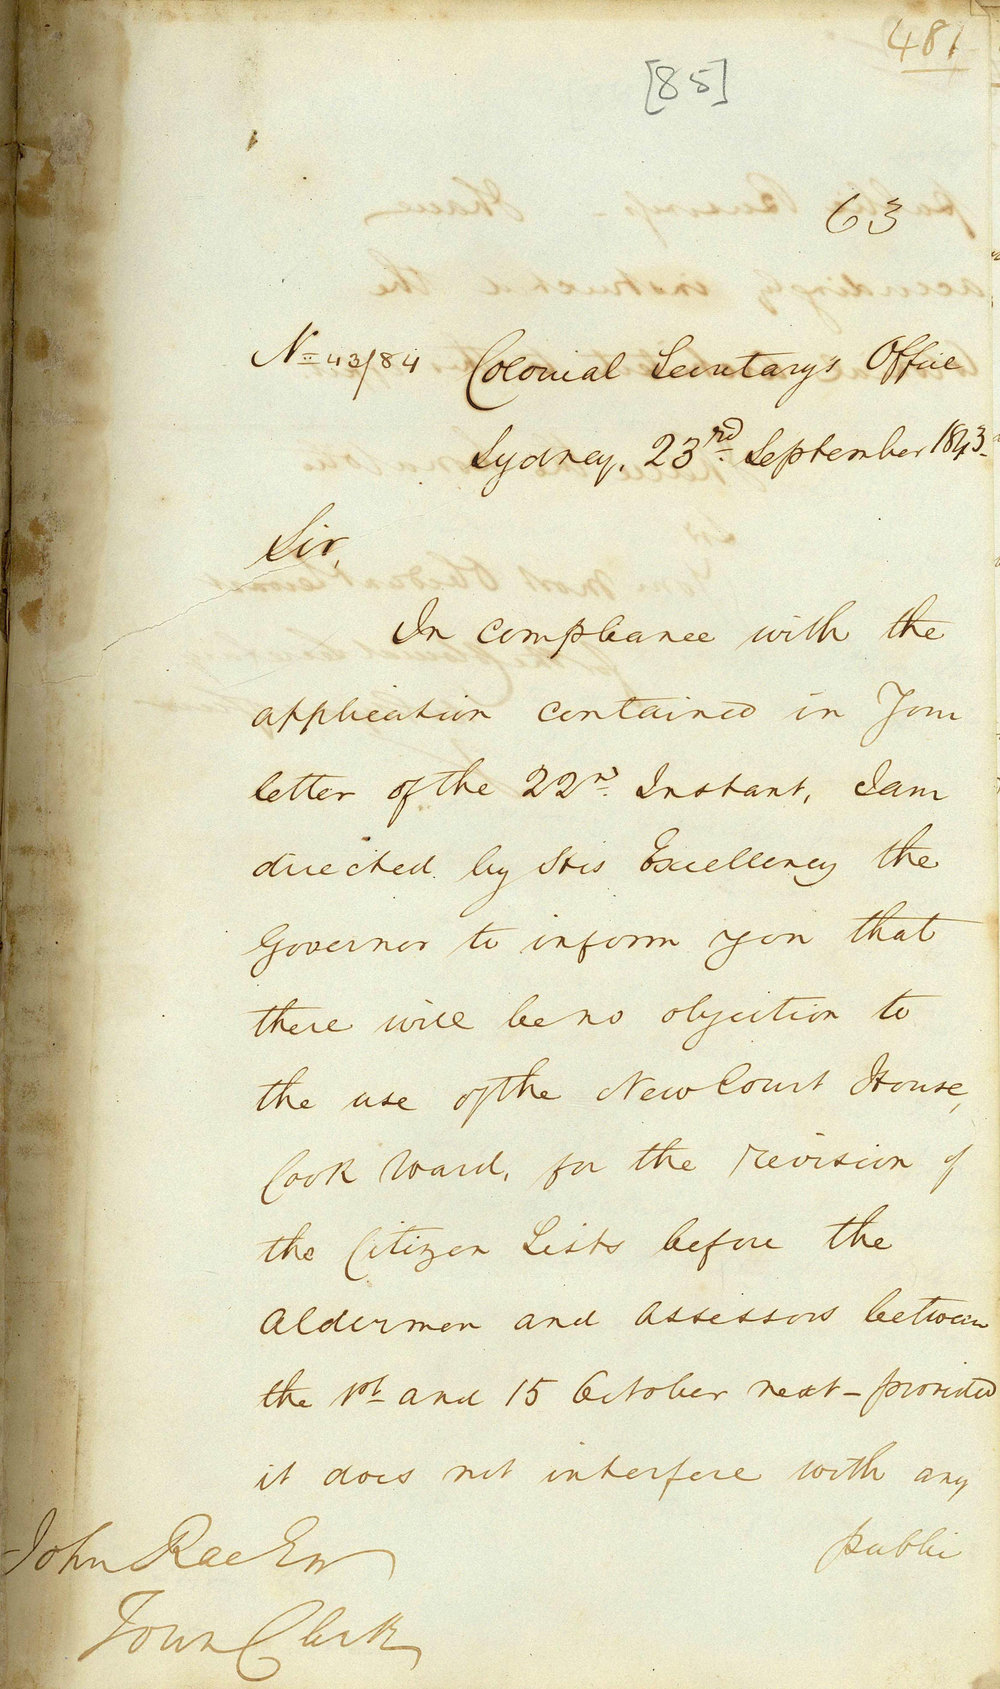 481
[85]
63
No 43/84 Colonial Secretary's Office
Sydney, 23rd September 1843
Sir,
In compliance with the
application contained in Your
letter of the 22nd Instant, I am
directed by His Excellency the
Governor to inform you that
there will be no objection to
the use of the New Court House,
Cook Ward, for the revision of
the Citizen Lists before the
Aldermen and Assessors between
the 1st and 15 October next - provided
it does not interfere with any
public
John Rae Esqr
Town Clerk